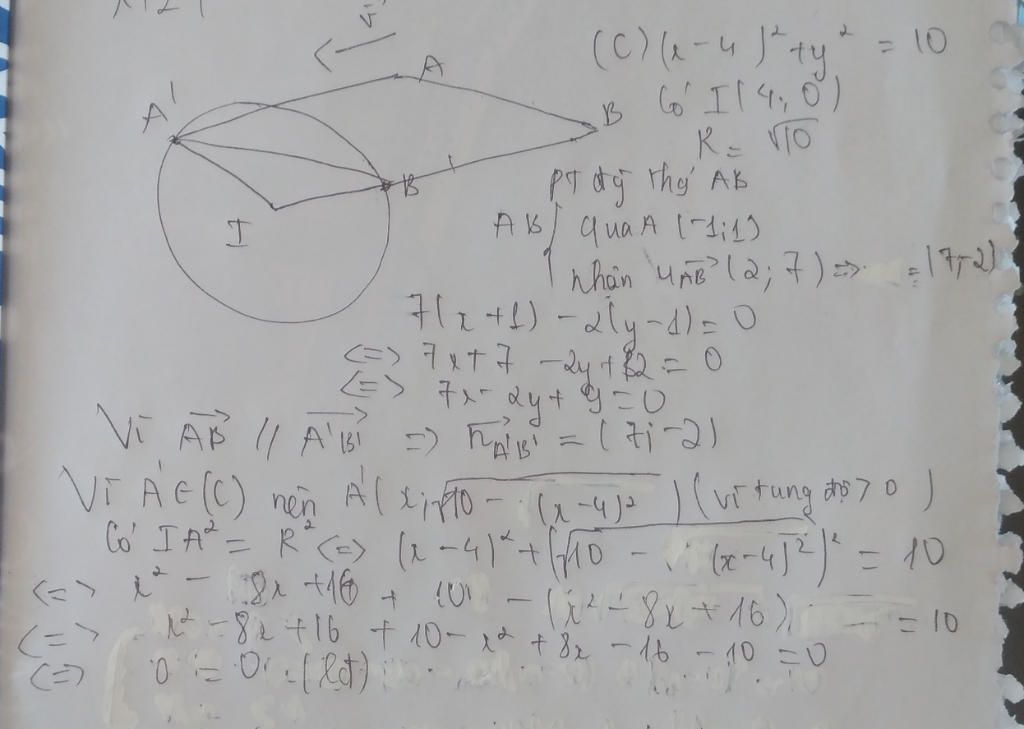 v
A
A'
B
B
I
(C) (x-4)² + y² = 10
Có I(4; 0)
R = √10
pt đg thg AB
AB { qua A (-1; 1)
nhận u_AB→ (2; 7) => = (7; -2)
7(x+1) - 2(y-1) = 0
<=> 7x + 7 - 2y + 2 = 0
<=> 7x - 2y + 9 = 0
Vì AB→ // A'B'→ => n_A'B'→ = (7; -2)
Vì A' ∈ (C) nên A'(x; √10 - (x-4)²) (vì tung độ > 0)
Có IA² = R² <=> (x-4)² + (√10 - (x-4)²)² = 10
<=> x² - 8x + 16 + 10 - (x² - 8x + 16) = 10
<=> x² - 8x + 16 + 10 - x² + 8x - 16 - 10 = 0
<=> 0 = 0 (lđ)